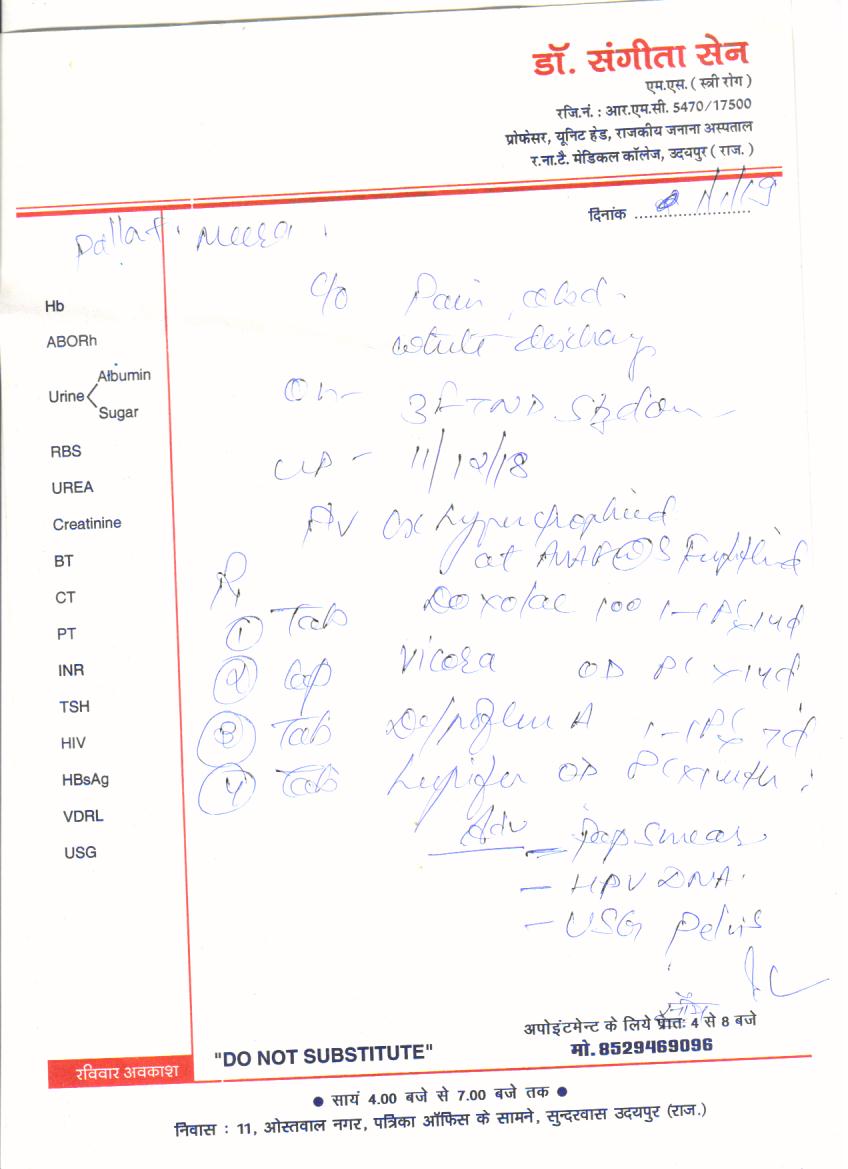 डॉ. संगीता सेन
एम.एस. ( स्त्री रोग )
रजि.नं. : आर.एम.सी. 5470/17500
प्रोफेसर, यूनिट हेड, राजकीय जनाना अस्पताल
र.ना.टै. मेडिकल कॉलेज, उदयपुर ( राज. )
दिनांक 1/1/19
Hb
ABORh
Urine
Albumin
Sugar
RBS
UREA
Creatinine
BT
CT
PT
INR
TSH
HIV
HBsAg
VDRL
USG
C/o Pain abd.
white discharge
O/H - 3 FTND
LMP - 11/12/18
PV Cx hypertrophied
at
R
① Tab 100 1-1 PC x 14d
② Cap OD PC x 14d
③ Tab A 1-1 PC x 7d
④ Tab OD PC x 1 mth
Adv - Pap smear
- HPV DNA.
- USG Pelvis
शाम
अपोइंटमेन्ट के लिये प्रातः 4 से 8 बजे
मो. 8529469096
"DO NOT SUBSTITUTE"
रविवार अवकाश
● सायं 4.00 बजे से 7.00 बजे तक ●
निवास : 11, ओस्तवाल नगर, पत्रिका ऑफिस के सामने, सुन्दरवास उदयपुर (राज.)